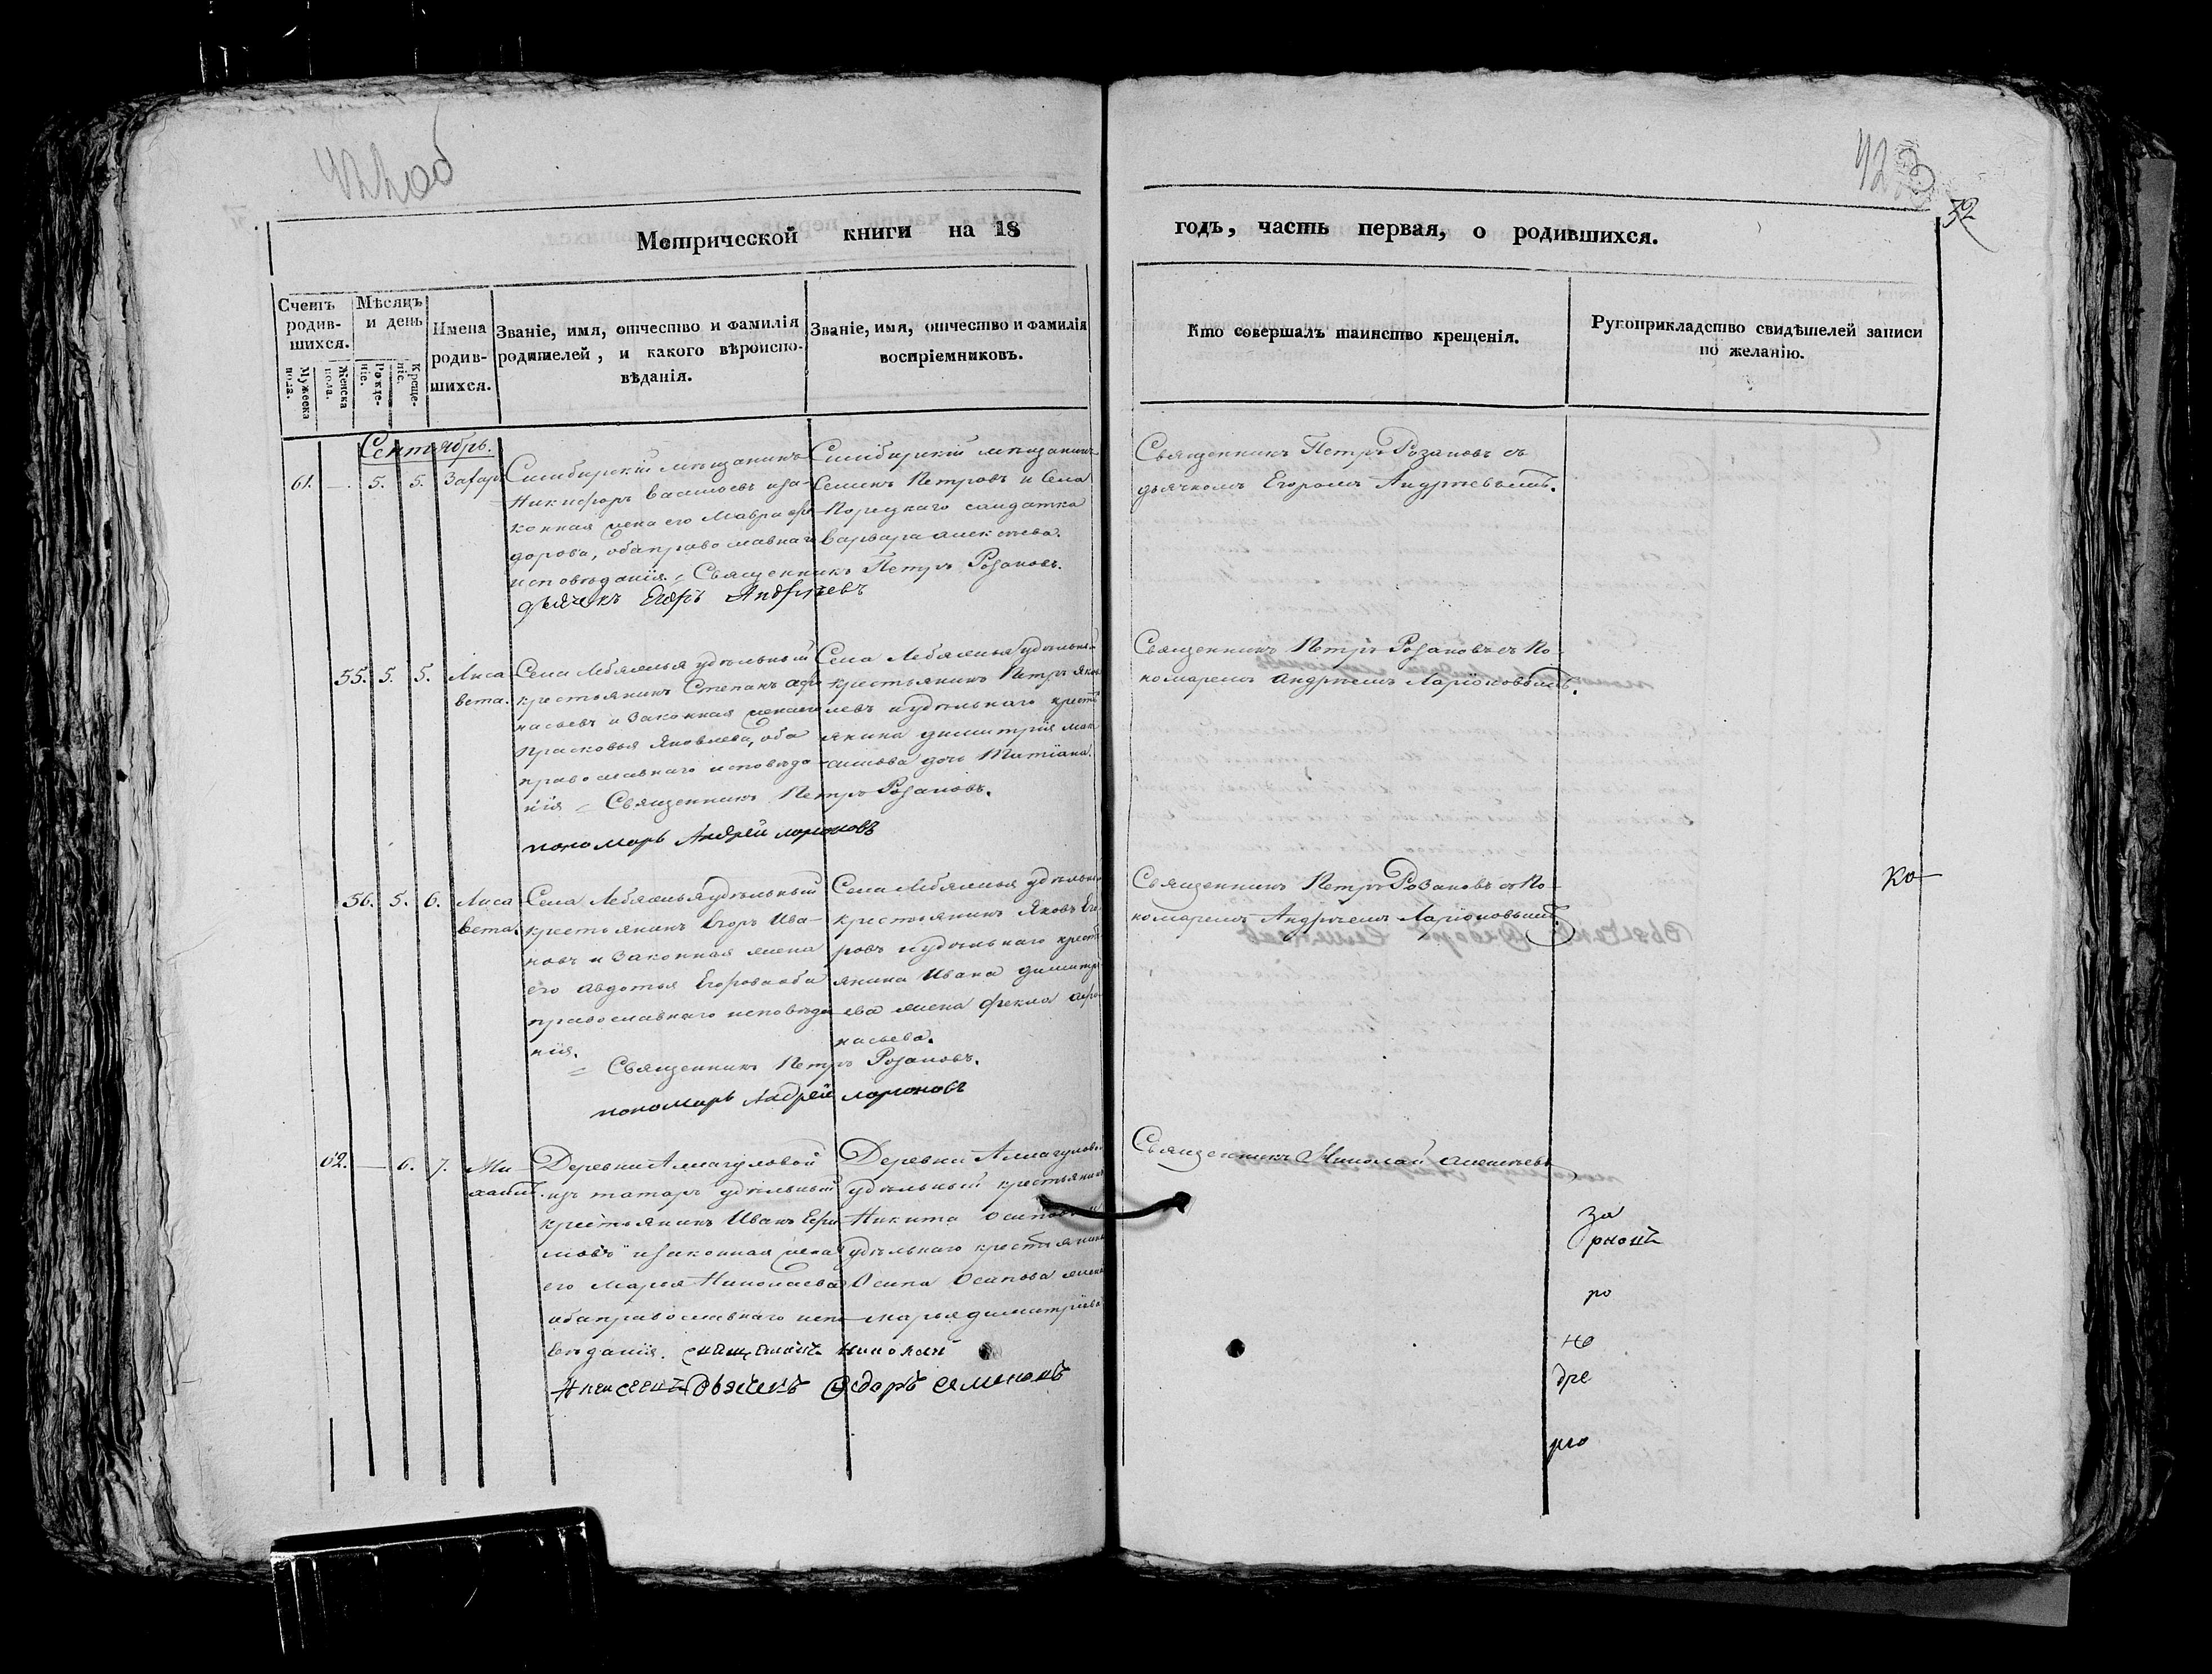 422об
423
32
Метрической книги на 18
годъ, часть первая, о родившихся.
Счетъ родив-шихся.
Мужеска пола.
Женска пола.
Мѣсяцъ и день
Рожде-ніе.
Креще-ніе.
Имена родив-шихся.
Званіе, имя, отчество и фамилія родителей, и какого вѣроиспо-вѣданія.
Званіе, имя, отчество и фамилія воспріемниковъ.
Кто совершалъ таинство крещенія.
Рукоприкладство свидѣтелей записи по желанію.
Сентябрь.
61. — 5. 5. Захаръ
Симбирскій мѣщанинъ
Никифоръ Васильевъ и за-
конная жена его Мавра Ѳе-
дорова, оба православнаго
исповѣданія. = Священникъ Петръ Розановъ.
дьячекъ Егоръ Андрѣевъ
Симбирскій мѣщанинъ
Семенъ Петровъ и Села
Порецкаго солдатка
Варвара Алексѣева.
Священникъ Петръ Розановъ съ
дьячкомъ Егоромъ Андрѣевымъ.
55. 5. 5. Лиса
вета.
Села Лебяжья удѣльный
крестьянинъ Степанъ Афа
насьевъ и законная жена его
Прасковья Яковлева, оба
православнаго исповѣда
нія = Священникъ Петръ Розановъ.
пономарь Андрей Ларионовъ
Села Лебяжья удѣльный
крестьянинъ Петръ Яков
левъ и удѣльнаго кресть
янина Димитрія Мак
симова дочь Татіана.
Священникъ Петръ Розановъ съ По-
номаремъ Андрѣемъ Ларіоновымъ.
56. 5. 6. Лиса
вета.
Села Лебяжья удѣльный
крестьянинъ Егоръ Ива-
новъ и законная жена
его Авдотья Егорова оба
православнаго исповѣда
нія.
= Священникъ Петръ Розановъ.
пономарь Андрей Ларионовъ
Села Лебяжья удѣльный
крестьянинъ Яковъ Его
ровъ и удѣльнаго кресть
янина Ивана Димитрі
ева жена Фекла Афа
насьева.
Священникъ Петръ Розановъ съ По-
номаремъ Андрѣемъ Ларіоновымъ.
ко
62. — 6. 7. Ми-
хаилъ.
Деревни Алмагуловой
изъ татаръ удѣльный
крестьянинъ Иванъ Ефи
мовъ и законная жена
его Марья Николаева
оба православнаго испо
вѣданія. священникъ Николай
Алексеевъ Дьячекъ Ѳедоръ Семеновъ
Деревни Алмагуловой
удѣльный крестьянинъ
Никита Осиповъ и
удѣльнаго крестьянина
Осипа Осипова жена
Марья Димитріева
Священникъ Николай Алексѣевъ
за
ро
не
дре